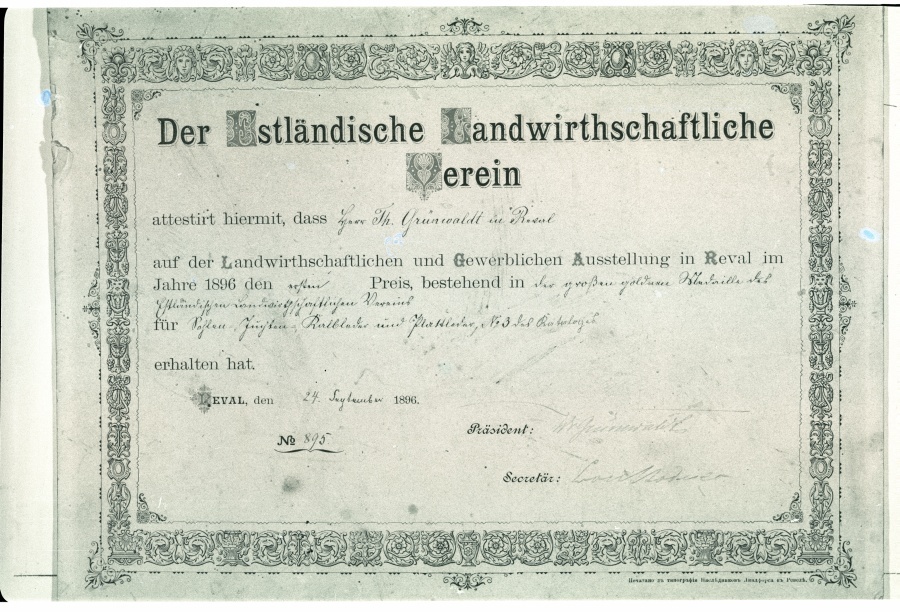 Der Estländische Landwirthschaftliche
Verein
attestirt hiermit, dass Herr Th. Grünwaldt in Reval
auf der Landwirthschaftlichen und Gewerblichen Ausstellung in Reval im
Jahre 1896 den ersten Preis, bestehend in der großen goldenen Medaille des
Estländischen Landwirthschaftlichen Vereins
für Sohlen, Juchten, Kalbleder und Plattleder, № 3 des Kataloges
erhalten hat.
REVAL, den 24. September 1896.
№ 895
Präsident:
Secretär:
Печатано въ типографіи Наслѣдниковъ Линдфорса въ Ревелѣ.